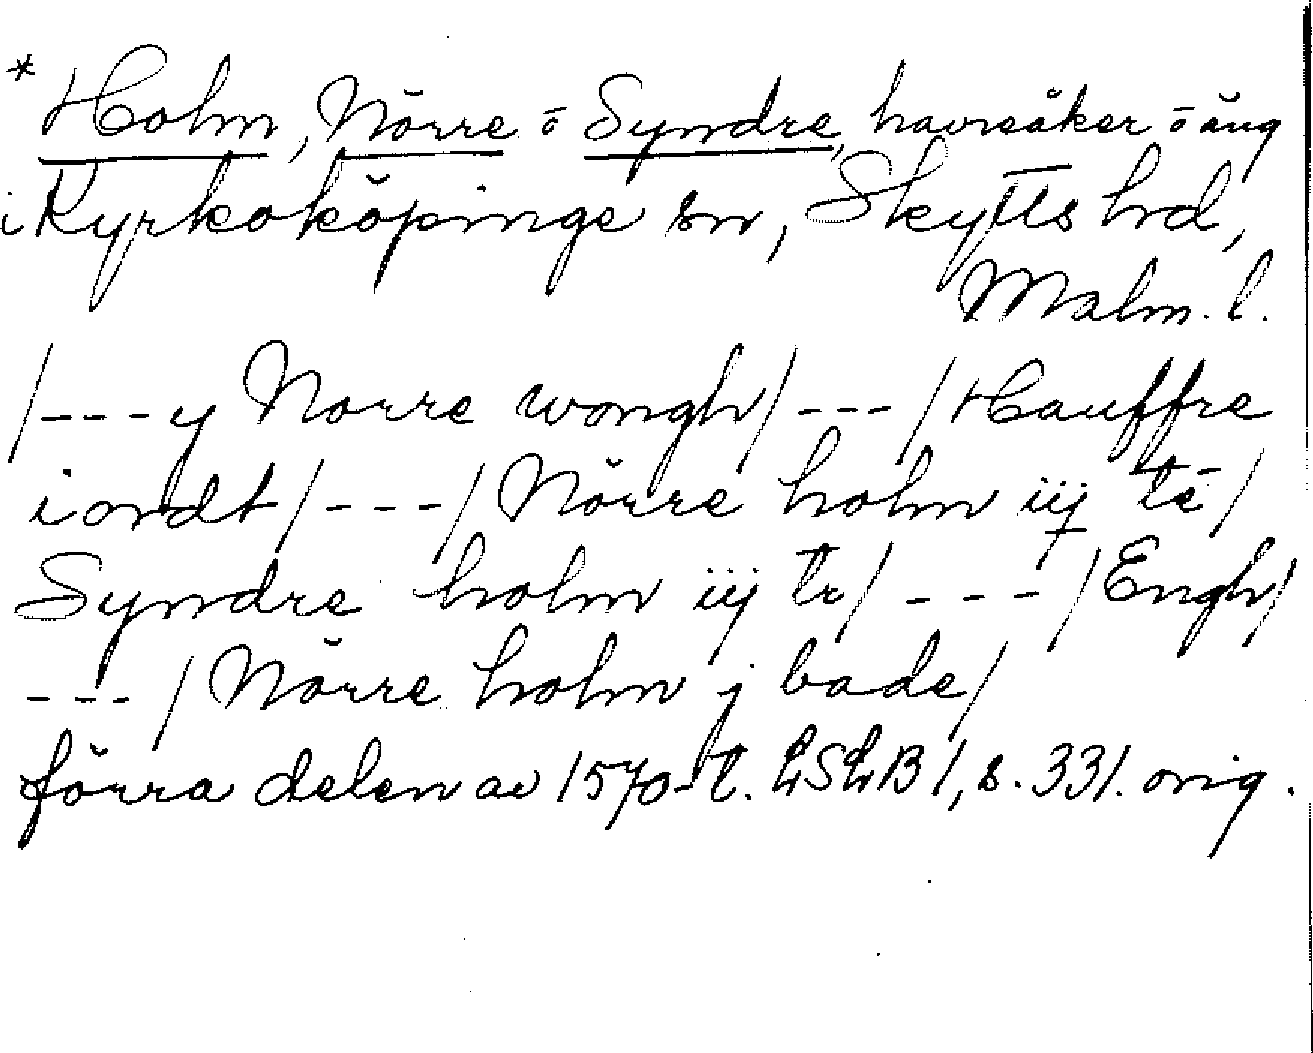 * Holm, Nörre o Syndre, havreåker o äng
i Kyrkoköpinge sn, Skytts hd,
Malm. l.
/---y Norre wongh/---/Hauffre
iordt/---/Nörre holm iij te/
Syndre holm iij tr/---/Engh/
---/Nörre holm j bade/
förra delen av 1570-t. LSLB 1, s. 331. orig.